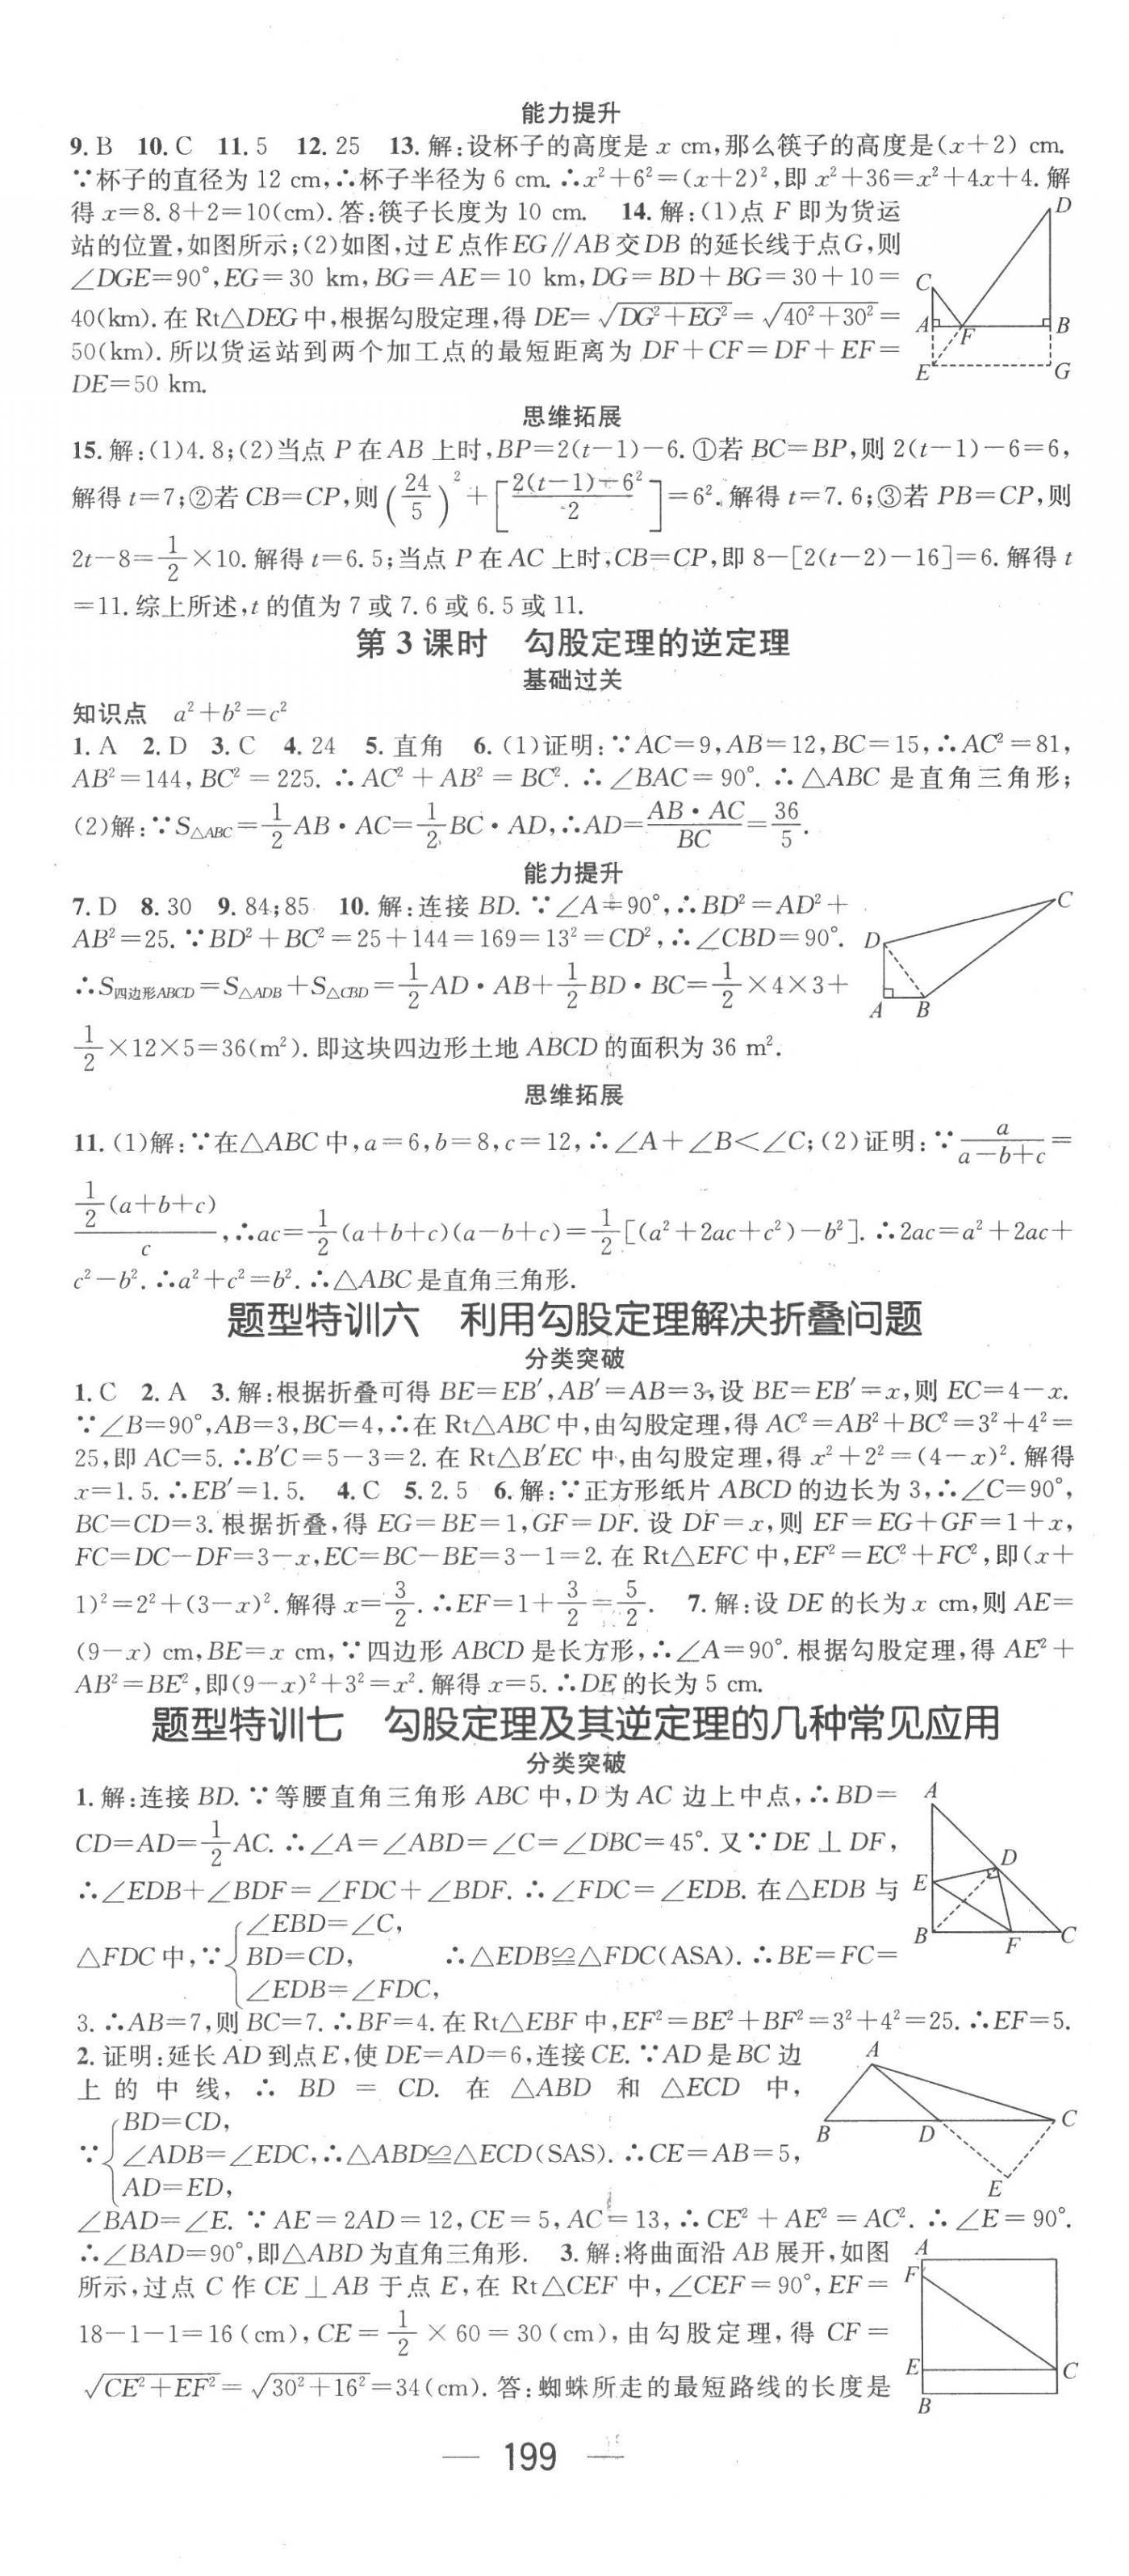 能力提升
9. B　10. C　11. 5　12. 25　13. 解:设杯子的高度是 x cm,那么筷子的高度是(x+2) cm.
∵杯子的直径为 12 cm,∴杯子半径为 6 cm. ∴x²+6²=(x+2)²,即 x²+36=x²+4x+4. 解
得 x=8. 8+2=10(cm). 答:筷子长度为 10 cm.　14. 解:(1)点 F 即为货运
站的位置,如图所示;(2)如图,过 E 点作EG∥AB 交 DB 的延长线于点G,则
∠DGE=90°,EG=30 km,BG=AE=10 km,DG=BD+BG=30+10=
40(km). 在 Rt△DEG 中,根据勾股定理,得 DE=√(DG²+EG²)=√(40²+30²)=
50(km). 所以货运站到两个加工点的最短距离为 DF+CF=DF+EF=
DE=50 km.
D
C
A
F
B
E
G
思维拓展
15. 解:(1)4. 8;(2)当点 P 在 AB 上时,BP=2(t-1)-6. ①若 BC=BP,则 2(t-1)-6=6,
解得 t=7;②若 CB=CP,则(24/5)²+[(2(t-1)-6²)/2]=6². 解得 t=7. 6;③若 PB=CP,则
2t-8=1/2×10. 解得 t=6. 5;当点 P 在 AC 上时,CB=CP,即 8-[2(t-2)-16]=6. 解得 t
=11. 综上所述,t 的值为 7 或 7. 6 或 6. 5 或 11.
第 3 课时　勾股定理的逆定理
基础过关
知识点　a²+b²=c²
1. A　2. D　3. C　4. 24　5. 直角　6. (1)证明:∵AC=9,AB=12,BC=15,∴AC²=81,
AB²=144,BC²=225. ∴AC²+AB²=BC². ∴∠BAC=90°. ∴△ABC 是直角三角形;
(2)解:∵S△ABC=1/2AB·AC=1/2BC·AD,∴AD=(AB·AC)/BC=36/5.
能力提升
7. D　8. 30　9. 84;85　10. 解:连接 BD. ∵∠A=90°,∴BD²=AD²+
AB²=25. ∵BD²+BC²=25+144=169=13²=CD²,∴∠CBD=90°.
∴S四边形ABCD=S△ADB+S△CBD=1/2AD·AB+1/2BD·BC=1/2×4×3+
1/2×12×5=36(m²). 即这块四边形土地 ABCD 的面积为 36 m².
C
D
A
B
思维拓展
11. (1)解:∵在△ABC 中,a=6,b=8,c=12,∴∠A+∠B<∠C;(2)证明:∵a/(a-b+c)=
(1/2(a+b+c))/c,∴ac=1/2(a+b+c)(a-b+c)=1/2[(a²+2ac+c²)-b²]. ∴2ac=a²+2ac+
c²-b². ∴a²+c²=b². ∴△ABC 是直角三角形.
题型特训六　利用勾股定理解决折叠问题
分类突破
1. C　2. A　3. 解:根据折叠可得 BE=EB′,AB′=AB=3,设 BE=EB′=x,则 EC=4-x.
∵∠B=90°,AB=3,BC=4,∴在 Rt△ABC 中,由勾股定理,得 AC²=AB²+BC²=3²+4²=
25,即 AC=5. ∴B′C=5-3=2. 在 Rt△B′EC 中,由勾股定理,得 x²+2²=(4-x)². 解得
x=1. 5. ∴EB′=1. 5.　4. C　5. 2. 5　6. 解:∵正方形纸片 ABCD 的边长为 3,∴∠C=90°,
BC=CD=3. 根据折叠,得 EG=BE=1,GF=DF. 设 DF=x,则 EF=EG+GF=1+x,
FC=DC-DF=3-x,EC=BC-BE=3-1=2. 在 Rt△EFC 中,EF²=EC²+FC²,即(x+
1)²=2²+(3-x)². 解得 x=3/2. ∴EF=1+3/2=5/2.　7. 解:设 DE 的长为 x cm,则 AE=
(9-x) cm,BE=x cm,∵四边形 ABCD 是长方形,∴∠A=90°. 根据勾股定理,得 AE²+
AB²=BE²,即(9-x)²+3²=x². 解得 x=5. ∴DE 的长为 5 cm.
题型特训七　勾股定理及其逆定理的几种常见应用
分类突破
1. 解:连接 BD. ∵等腰直角三角形 ABC 中,D 为 AC 边上中点,∴BD=
CD=AD=1/2AC. ∴∠A=∠ABD=∠C=∠DBC=45°. 又∵DE⊥DF,
∴∠EDB+∠BDF=∠FDC+∠BDF. ∴∠FDC=∠EDB. 在△EDB 与
∠EBD=∠C,
△FDC 中,∵{BD=CD,　∴△EDB≌△FDC(ASA). ∴BE=FC=
∠EDB=∠FDC,
3. ∴AB=7,则 BC=7. ∴BF=4. 在 Rt△EBF 中,EF²=BE²+BF²=3²+4²=25. ∴EF=5.
A
D
E
B
F
C
2. 证明:延长 AD 到点 E,使 DE=AD=6,连接 CE. ∵AD 是 BC 边
上的中线,∴BD=CD. 在△ABD 和△ECD 中,
BD=CD,
∵{∠ADB=∠EDC,∴△ABD≌△ECD(SAS). ∴CE=AB=5,
AD=ED,
A
B
D
C
E
∠BAD=∠E. ∵AE=2AD=12,CE=5,AC=13,∴CE²+AE²=AC². ∴∠E=90°.
∴∠BAD=90°,即△ABD 为直角三角形.　3. 解:将曲面沿 AB 展开,如图
所示,过点 C 作 CE⊥AB 于点 E,在 Rt△CEF 中,∠CEF=90°,EF=
18-1-1=16(cm),CE=1/2×60=30(cm),由勾股定理,得 CF=
√(CE²+EF²)=√(30²+16²)=34(cm). 答:蜘蛛所走的最短路线的长度是
A
F
E
C
B
— 199 —